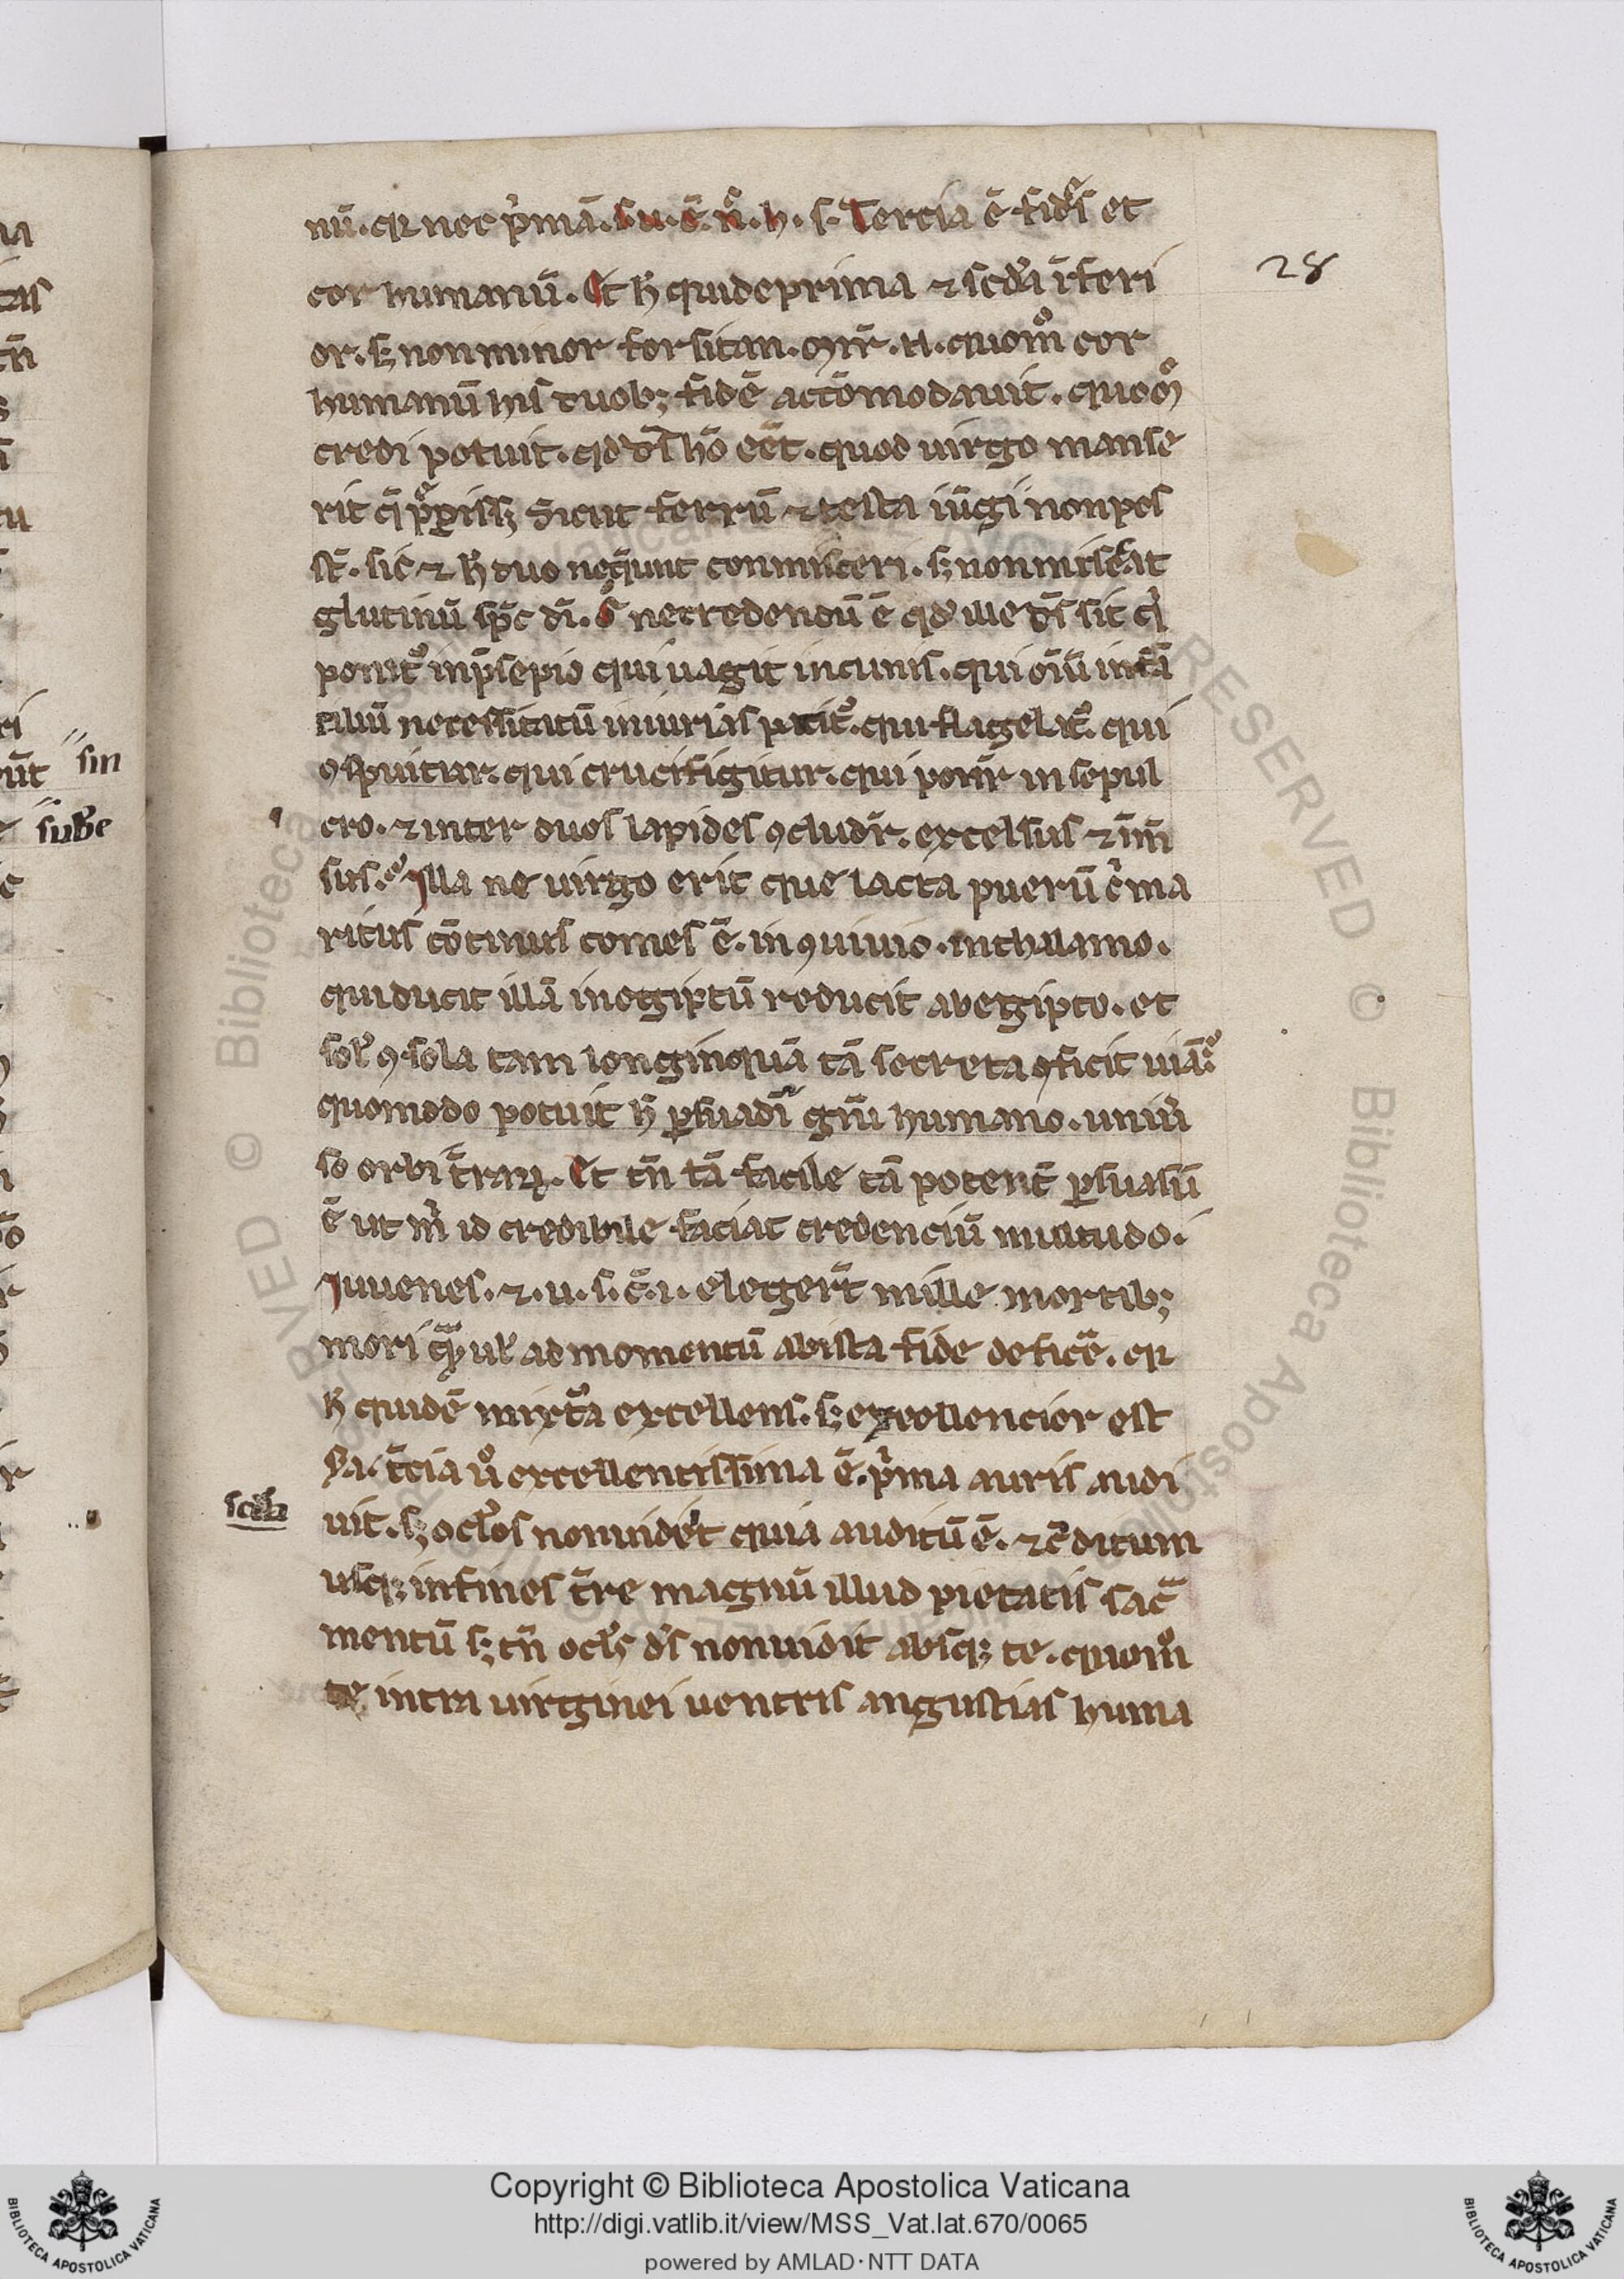 nū. qr nec p'mā. s. u. ē. n̄. h. s. Tercia ē fides et
28
cor humanū. Et h̄ quide prima ⁊ scd'a īferi
or. sꝫ non minor forsitan. Mir̄. n. quom̊ cor
humanū his duobꝫ fidē accōmodauit. quom̊
credi potuit. qd' ds̄ hō eēt. quod uirgo manse
rit q̄ Sicut ferrū ⁊ testa iūgi non pos
st̄. sic ⁊ h̄ duo neq̄unt conmisceri. sꝫ non misceat
glutinū sp̄c dī. S; ne credendū ē qd' ille ds̄ sit q'
ponit᷑ in p̄sepio qui uagit in cunis. qui oīū infā
tiliū necessitatū iniurias patit᷑. qui flagelat᷑. qui
ꝯspuitur. qui crucifigitur. qui ponīr in sepul
cro. ⁊ inter duos lapides ꝯcludīr. excelsus ⁊ īm̄
sus. Illa ne uirgo erit que lacta puerū c' ma
ritus cōtinuus comes ē. in ꝯuiuio. in thalamo.
qui ducit illā in egiptū reducit ab egipto. et
sol' ꝯ sola tam longinquā tā secreta ꝯficit uiā.
quomodo potuit h̄ ꝑsuadi gn̄i humano. uniu'
so orbi t̄rarꝝ. Et tn̄ tā facile tā potent̄ ꝑsuasū
ē ut m' id credibile faciat credenciū multitudo.
Iuuenes. ⁊. u. s. c̄. i. elegerт̄ mille mortibꝫ
mori q̄ ul' ad momentū ab ista fide deficē. qr
h̄ quidē mixt'a excellens. sꝫ excellencior est
sc̄da
s̄a. t̄cia ů excellentissima ē. p'ma auris audi
uit. sꝫ ocl'os non uidet quia auditū ē. ⁊ c̄ditum
usqꝫ in fines t̄re magnū illud pietatis sac̄
mentū sꝫ tn̄ ocl's ds̄ non uidit absqꝫ te. quom̊
te intra uirginei uentris angustias huma
sin
sub'e
Copyright © Biblioteca Apostolica Vaticana
http://digi.vatlib.it/view/MSS_Vat.lat.670/0065
powered by AMLAD·NTT DATA